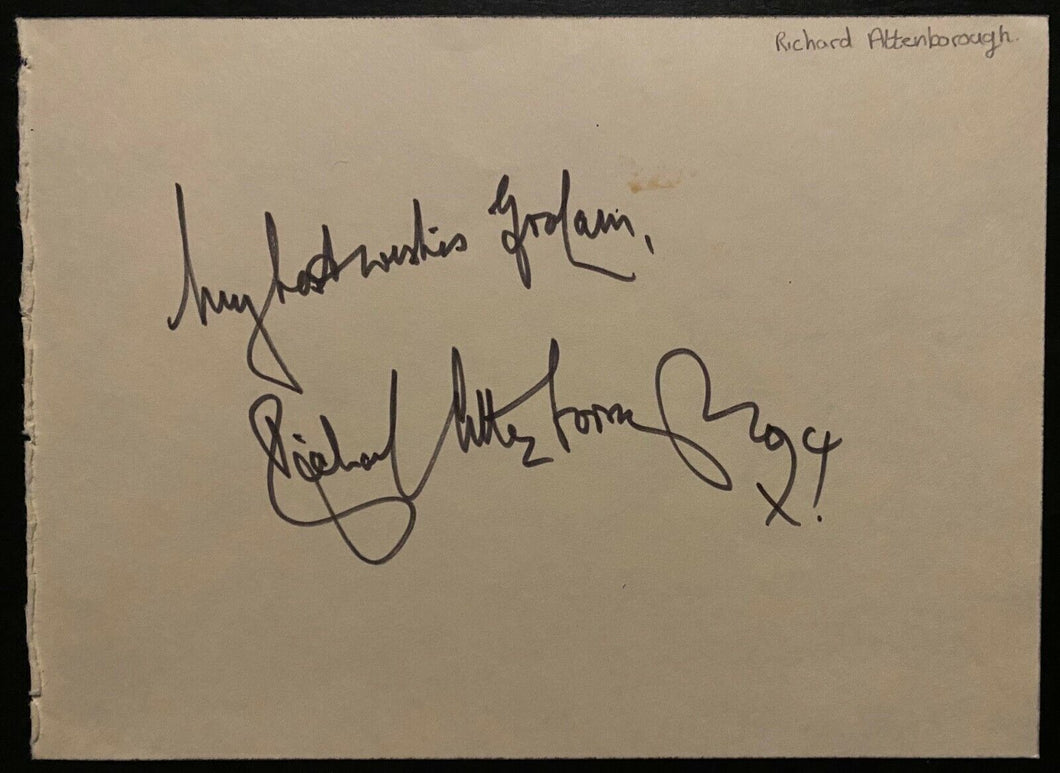 Richard Attenborough.
My best wishes Graham,
Richard Attenborough